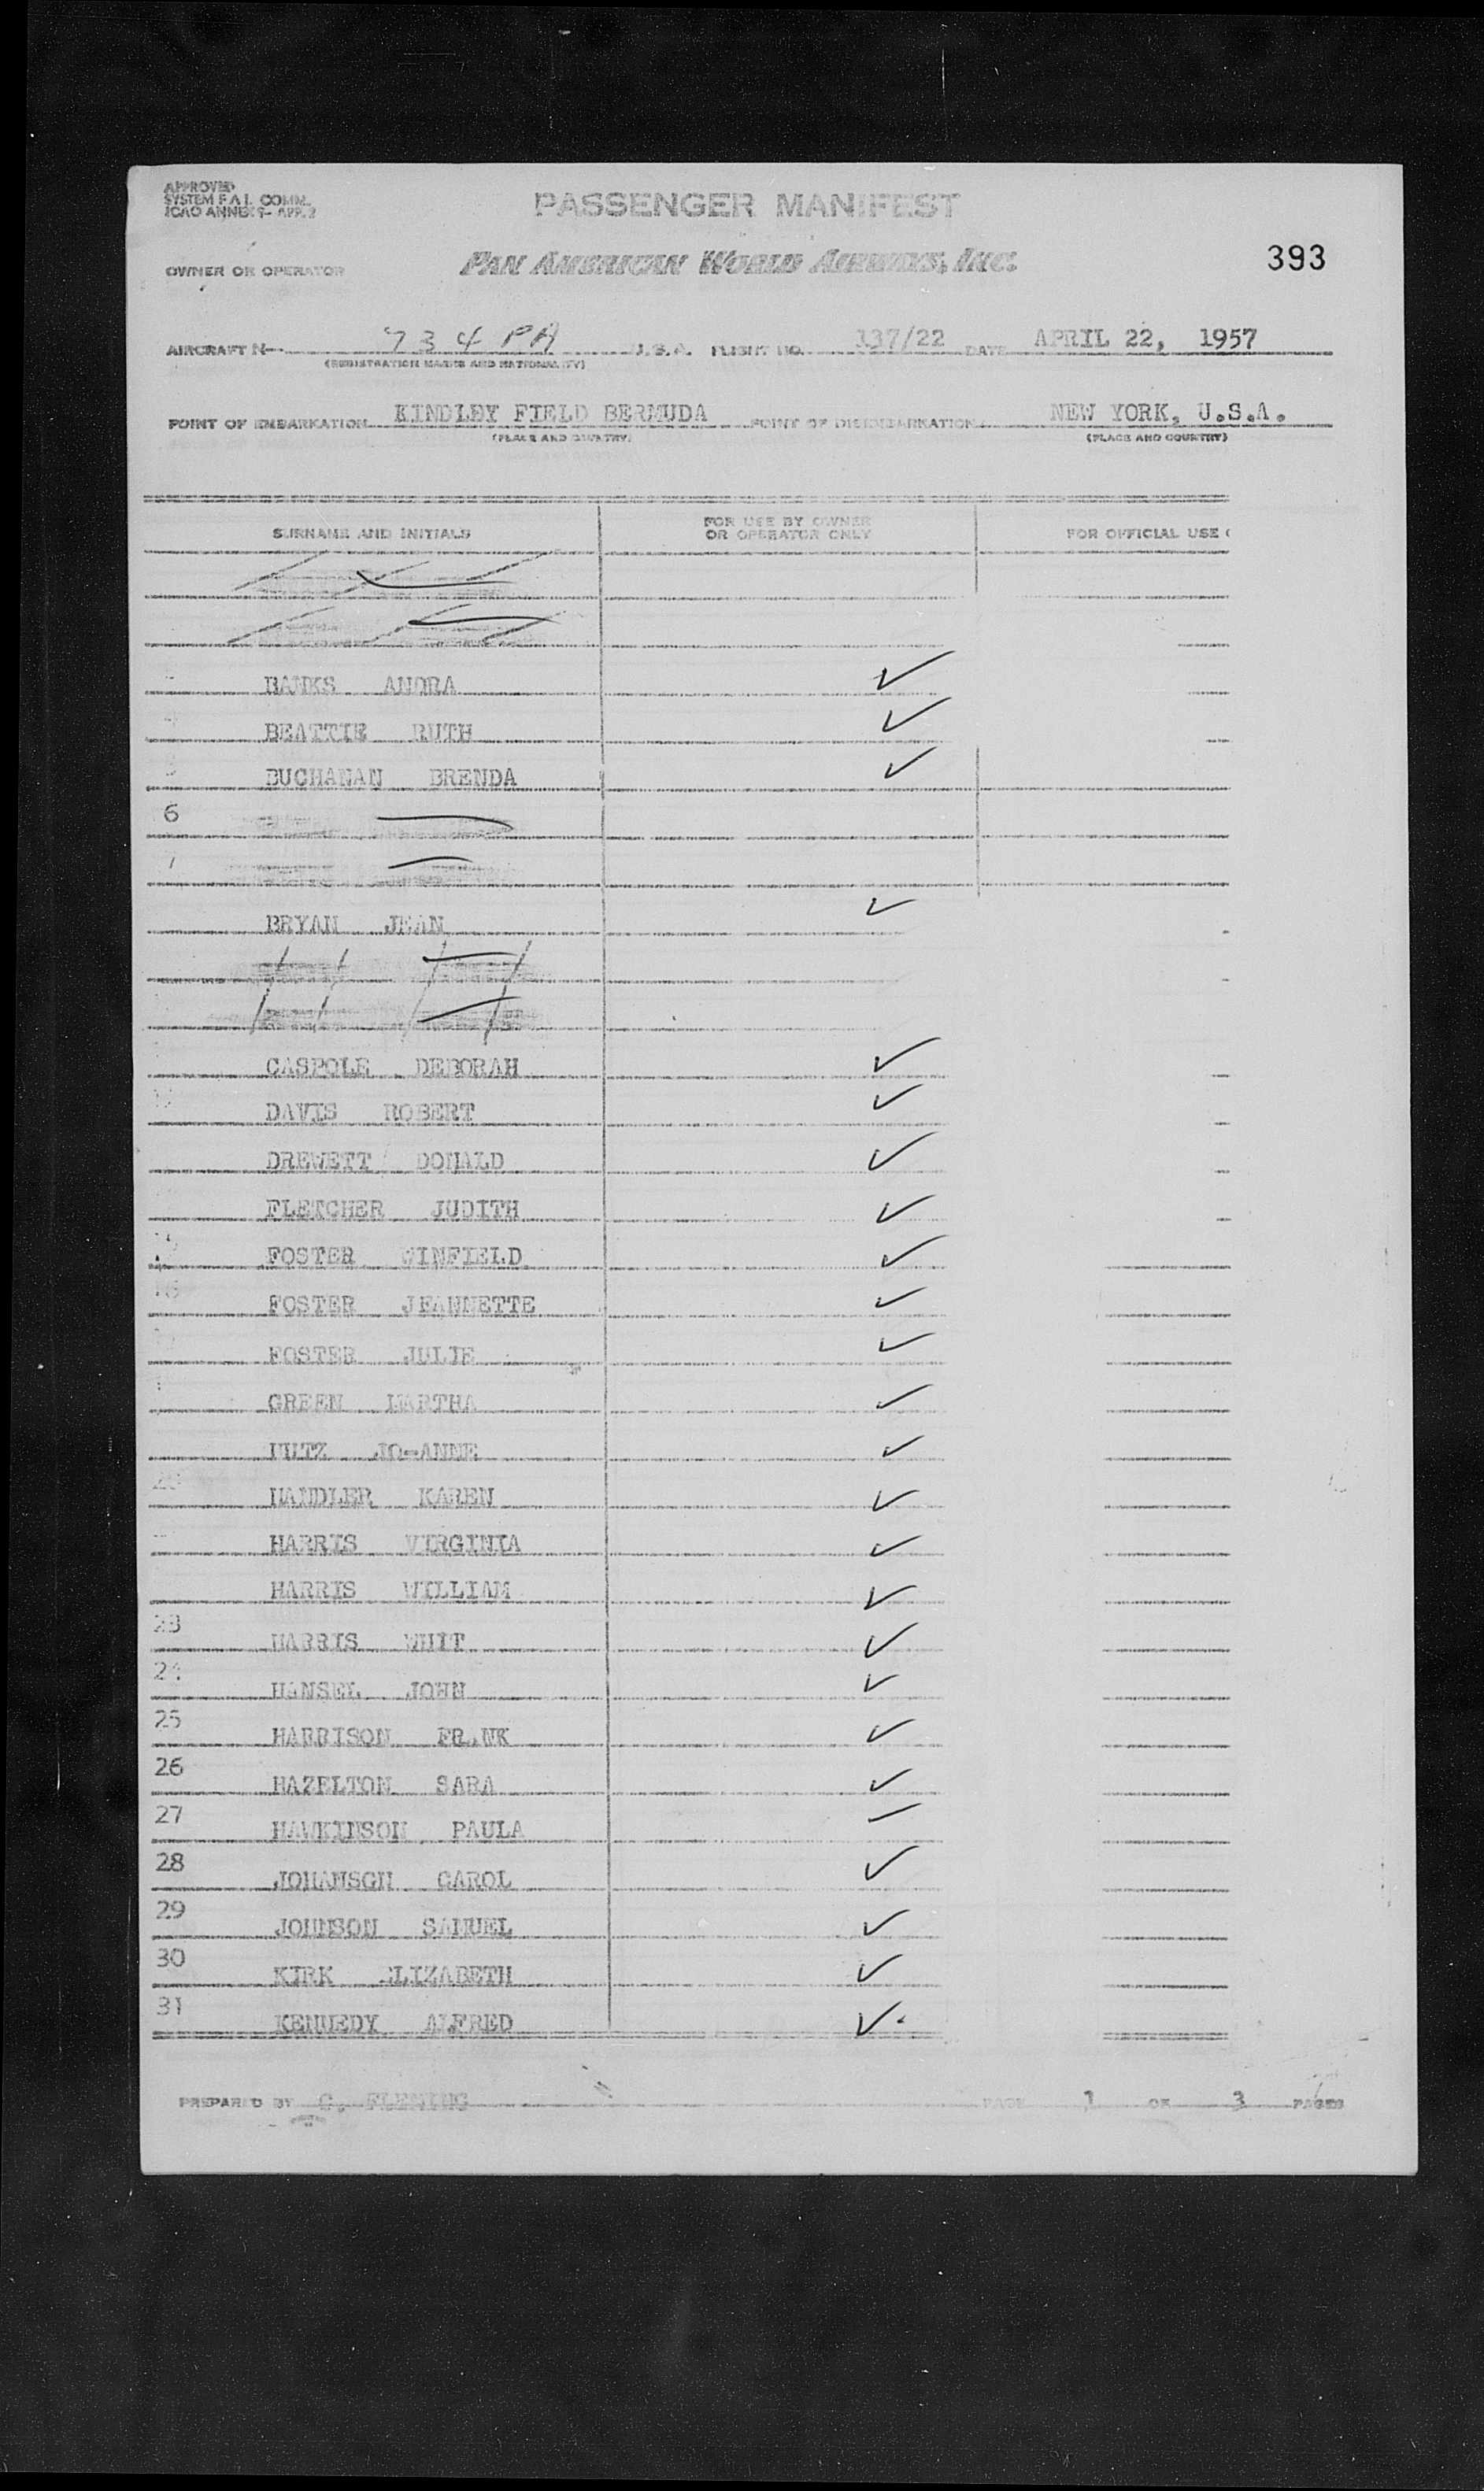 APPROVED
SYSTEM F A L COMM.
ICAO ANNEX 9- APP. 2
PASSENGER MANIFEST
OWNER OR OPERATOR PAN AMERICAN WORLD AIRWAYS, INC. 393
AIRCRAFT N- 734 PA U.S.A. FLIGHT NO. 137/22 DATE APRIL 22, 1957
(REGISTRATION MARKS AND NATIONALITY)
POINT OF EMBARKATION KINDLEY FIELD BERMUDA POINT OF DISEMBARKATION NEW YORK, U.S.A.
(PLACE AND COUNTRY) (PLACE AND COUNTRY)
SURNAME AND INITIALS FOR USE BY OWNER OR OPERATOR ONLY FOR OFFICIAL USE
BANKS ANDRA ✓
BEATTIE RUTH ✓
BUCHANAN BRENDA ✓
6
7
BRYAN JEAN ✓
CASPOLE DEBORAH ✓
DAVIS ROBERT ✓
DREWETT DONALD ✓
FLETCHER JUDITH ✓
FOSTER WINFIELD ✓
16 FOSTER JEANNETTE ✓
FOSTER JULIE ✓
GREEN MARTHA ✓
JO-ANNE ✓
20 HANDLER KAREN ✓
HARRIS VIRGINIA ✓
HARRIS WILLIAM ✓
23 HARRIS WHIT ✓
24 HANSEL JOHN ✓
25 HARRISON FR.NK ✓
26 HAZELTON SARA ✓
27 HAWKINSON PAULA ✓
28 JOHANSON CAROL ✓
29 JOHNSON SAMUEL ✓
30 KIRK ELIZABETH ✓
31 KENNEDY ALFRED ✓
PREPARED BY C. FLEMING PAGE 1 OF 3 PAGES